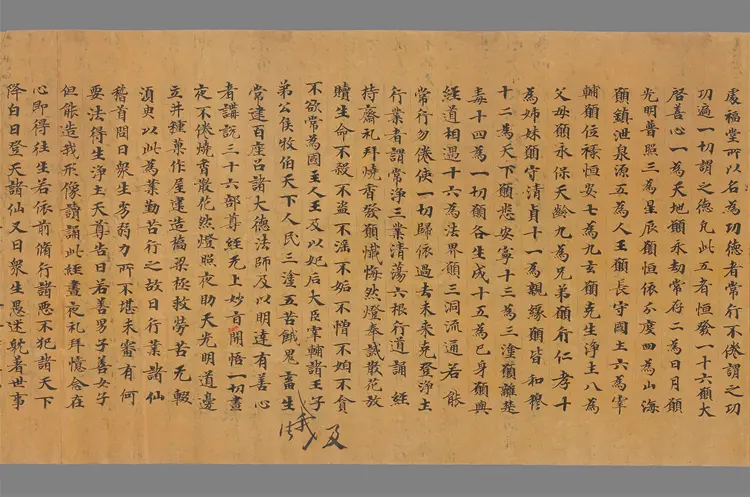 處福堂所以名為功德者常行不倦謂之功
功遍一切謂之德凡此五者恒發一十六願大
啓善心一為天地願永劫常存二為日月願
光明普照三為星辰願恒依尒度四為山海
願鎮泄泉源五為人王願長守國土六為宰
輔願位祿恒安七為九玄願克生淨土八為
父母願永保天齡九為兄弟願行仁孝十
為姊妹願守清貞十一為親緣願皆和穆
十二為天下願悉安寧十三為三塗願離楚
毒十四為一切願各生成十五為己身願與
經道相遇十六為法界願三洞流通若能
常行勿倦使一切歸依過去未來克登淨土
行業者謂常淨三業清蕩六根行道誦經
持齋礼拜燒香發願懺悔然燈奉誡散花放
贖生命不煞不盜不淫不妬不憎不㛐不貪
不欲常為國王人王及以妃后大臣宰輔諸王子
弟公侯牧伯天下人民三塗五苦餓鬼畜生
常建百座召諸大德法師及以明達有善心
者講說三十六部尊經无上妙音開悟一切晝
夜不倦燒香散花然燈照夜助天光明道邊
立井種菓作屋遠造橋梁拯救勞苦无輟
湏臾以此為業勤苦行之故曰行業諸仙
稽首問曰眾生劣弱力所不堪未審有何
要法得生淨土天尊告曰若善男子善女子
但能造我形像讀誦此經晝夜礼拜憶念在
心即得往生若依前脩行諸惡不犯諸天下
降白日登天諸仙又曰眾生愚迷躭著世事
及